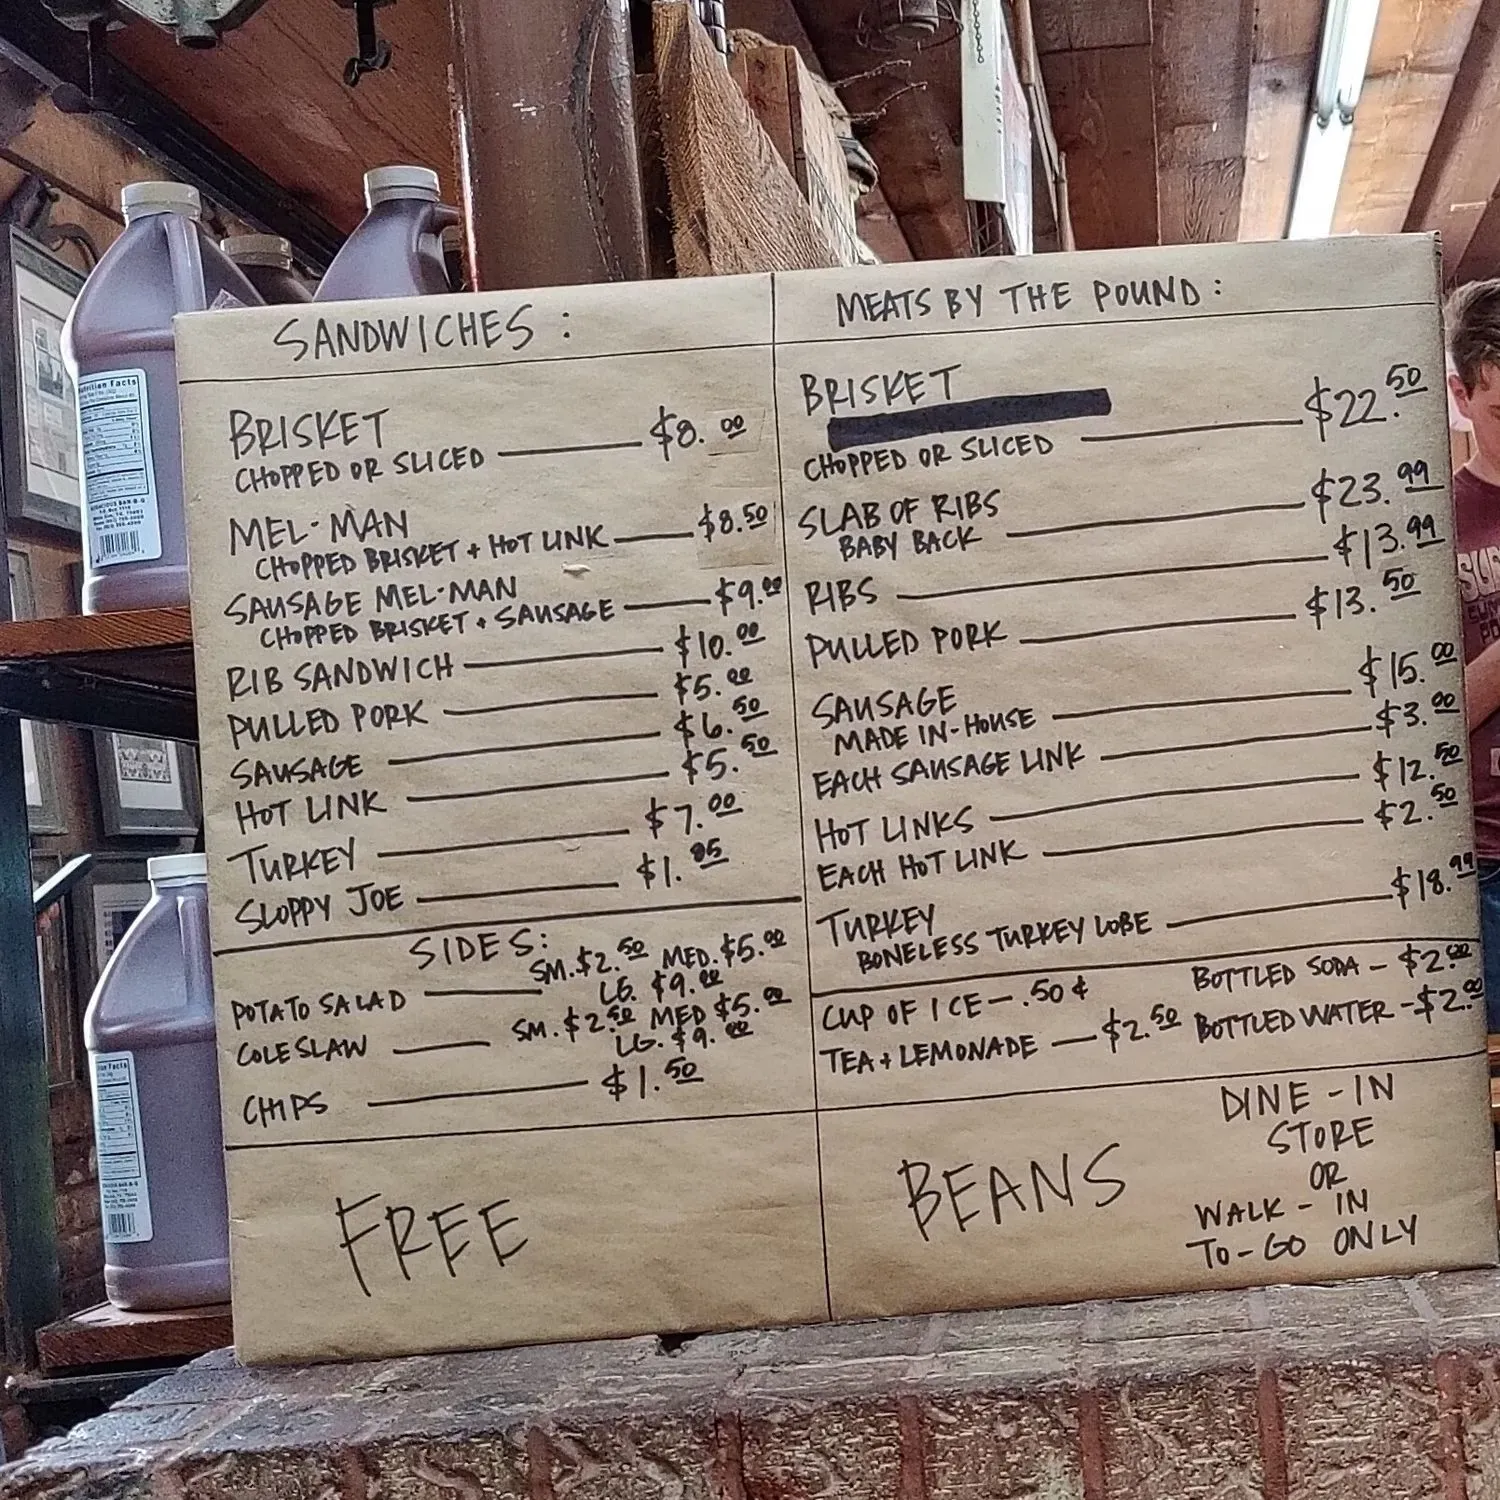 SANDWICHES:
BRISKET
CHOPPED OR SLICED $8.00
MEL-MAN
CHOPPED BRISKET + HOT LINK $8.50
SAUSAGE MEL-MAN
CHOPPED BRISKET + SAUSAGE $9.00
RIB SANDWICH $10.00
PULLED PORK $5.00
SAUSAGE $6.50
HOT LINK $5.50
TURKEY $7.00
SLOPPY JOE $1.95
SIDES:
SM. $2.50 MED. $5.00
POTATO SALAD LG. $9.00
SM. $2.50 MED $5.00
COLESLAW LG. $9.00
CHIPS $1.50
FREE
MEATS BY THE POUND:
BRISKET
CHOPPED OR SLICED $22.50
SLAB OF RIBS
BABY BACK $23.99
RIBS $13.99
PULLED PORK $13.50
SAUSAGE
MADE IN-HOUSE $15.00
EACH SAUSAGE LINK $3.00
HOT LINKS $12.50
EACH HOT LINK $2.50
TURKEY
BONELESS TURKEY LOBE $18.99
CUP OF ICE - .50¢
BOTTLED SODA - $2.00
TEA + LEMONADE - $2.50
BOTTLED WATER - $2.00
BEANS
DINE-IN
STORE
OR
WALK-IN
TO-GO ONLY
Nutrition Facts